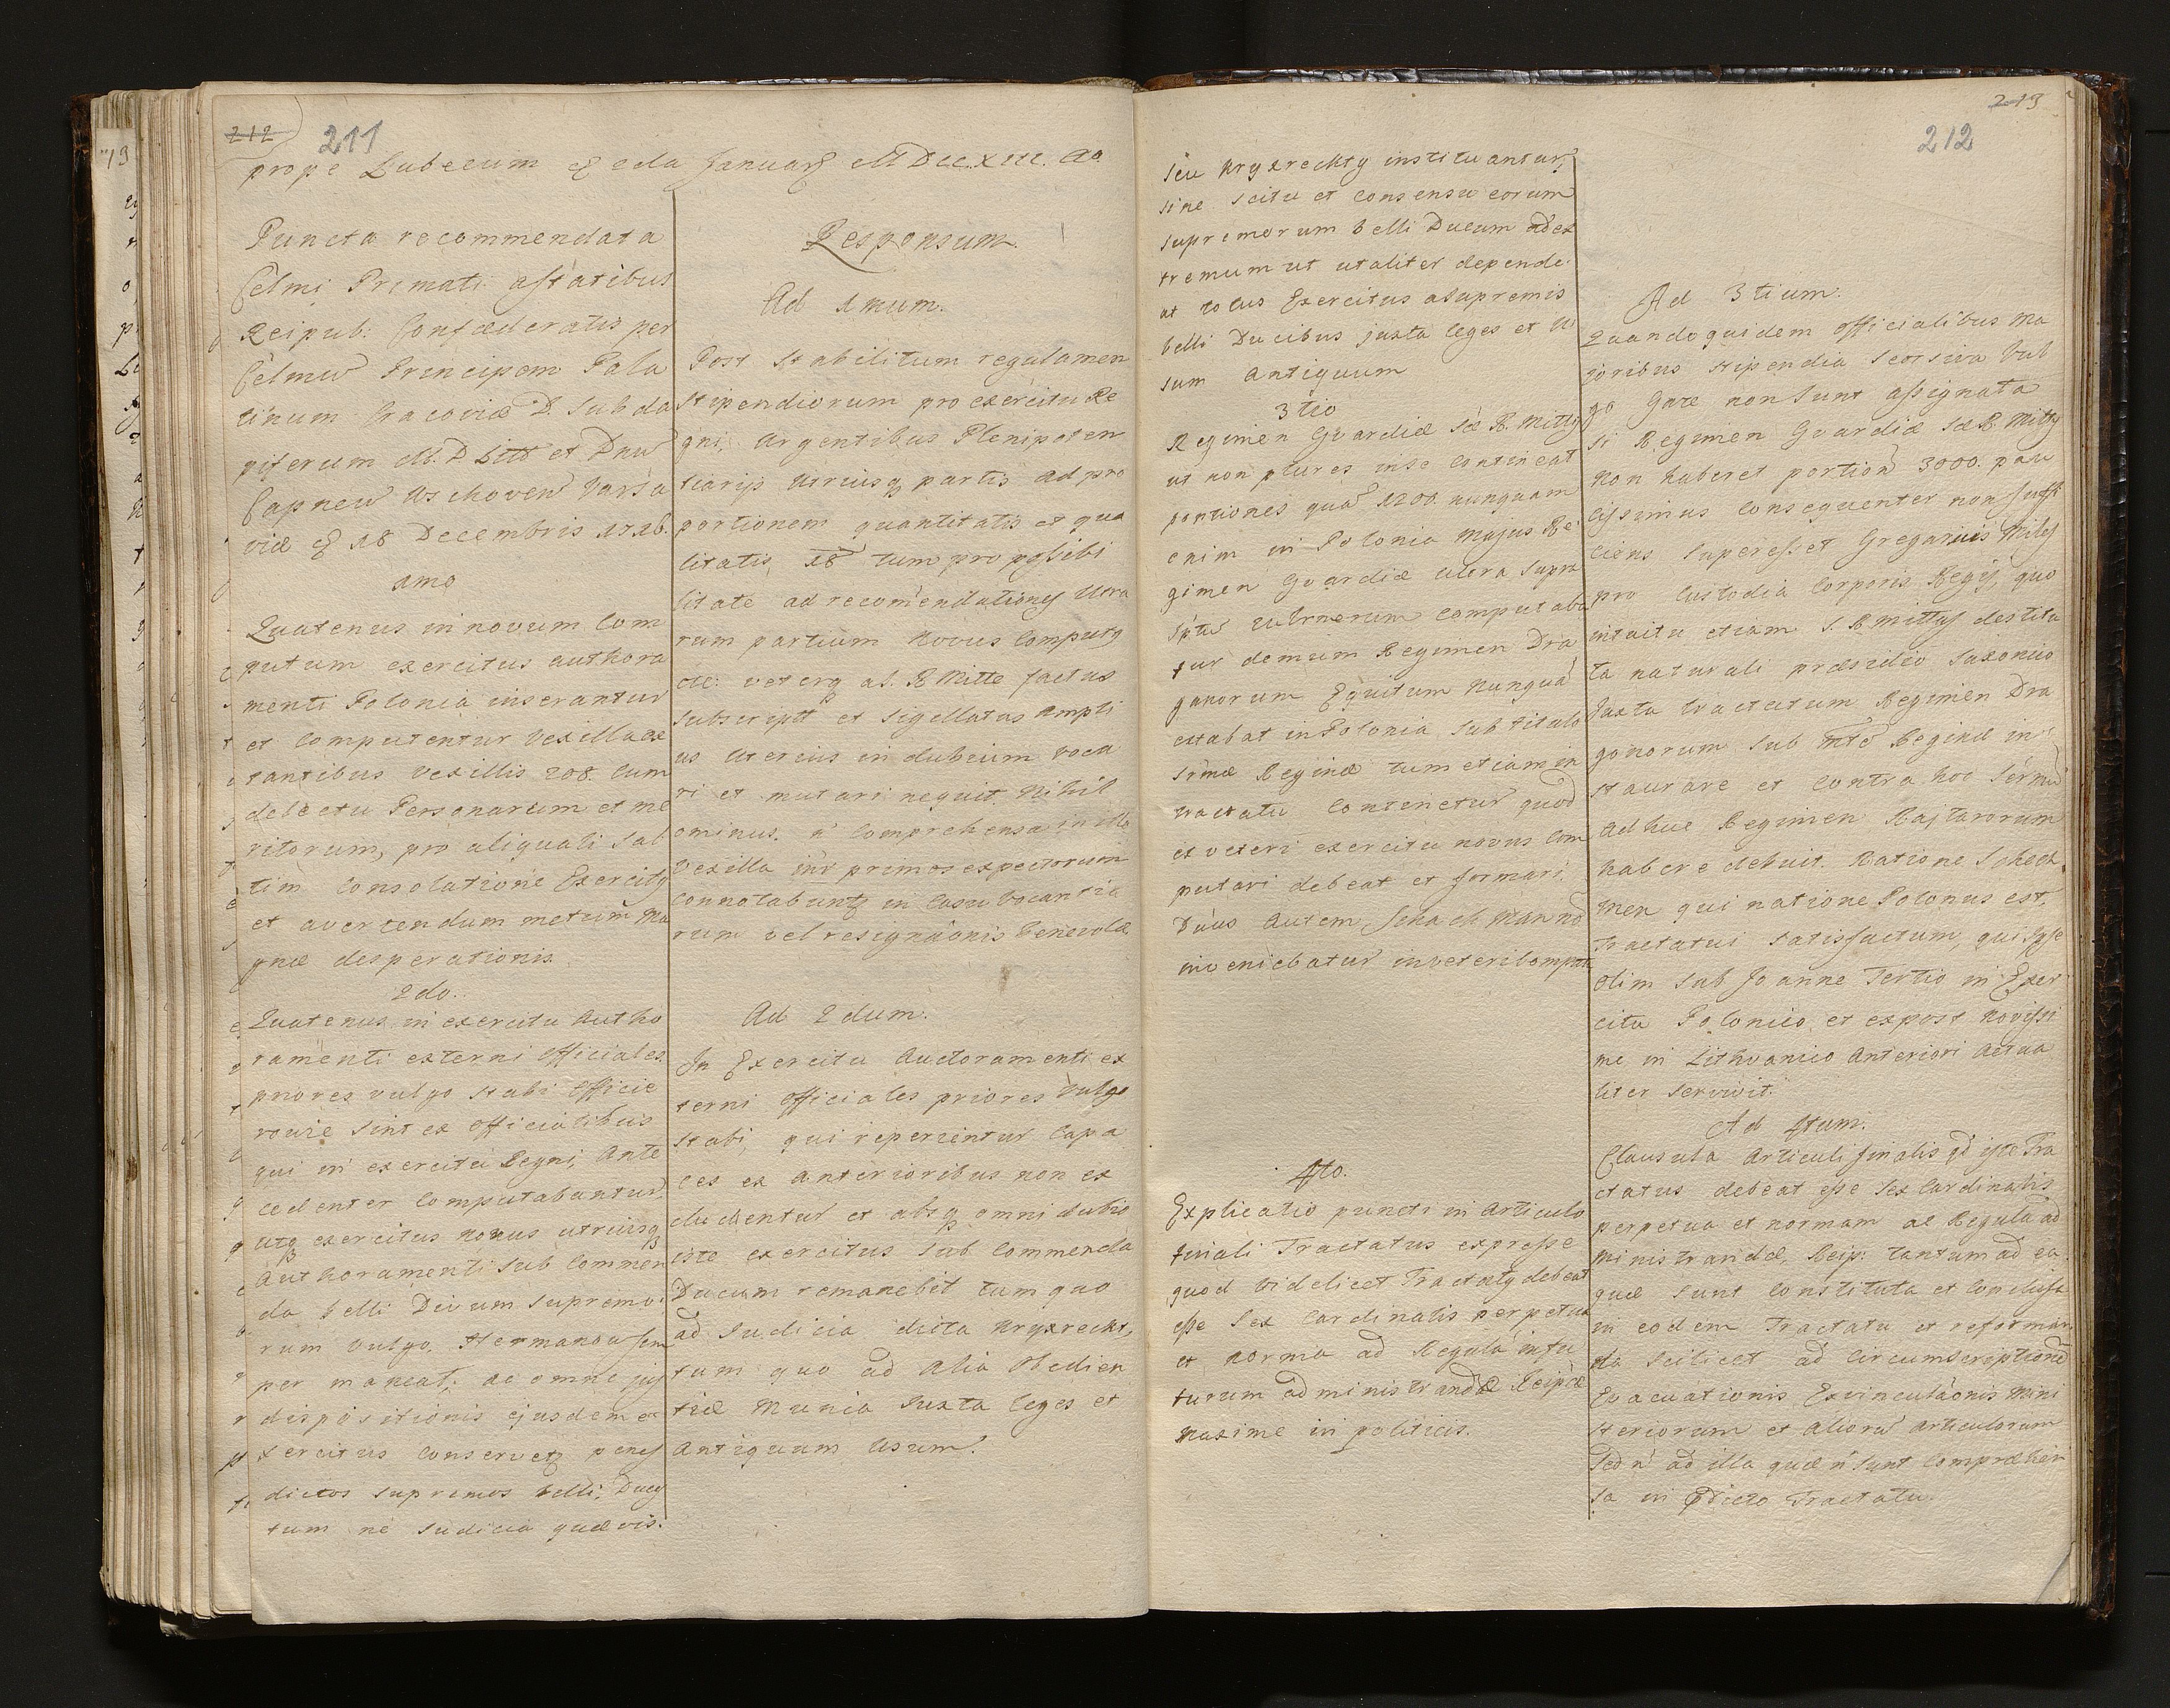 212
211
prope Lubecum
Puncta recommendata
Celmi Primati a statibus
Reipub: Confæderatis per
Principem Pala
tinum Cracoviæ D. Subda
piferum
Varsa
viæ 18 Decembris
1mo
Quatenus in novum Com
putum exercitus authora
menti Polonici inserantur
et computentur Vexilla ex
tantibus vexillis 208. Cum
delectu Personarum et me
ritorum, pro aliquali Sal
tim Consolatione Exercitg
et avertendum metum Ma
gnæ desperationis.
2do.
Quatenus in exercitu Autho
ramenti externi Officiales
priores vulgo stabi Officie
rowie sint ex Officialibus
qui in exercitu Regni, Ante
cedenter Computabantur,
utq exercitus novus utriusq
Authoramenti sub Commen
da belli Ducum Supremo
rum vulgo Hermanow sem
per maneat, ac omne jus
dispositionis ejusdem e
xercitus conservetg penes
dictos supremos belli, Ducy
tum ne Judicia quævis.
Responsum.
Ad 1mum.
Post Stabilitum regulamen
stipendiorum pro exercitu Re
gni, Urgentibus Plenipoten
tiarijs utriusq partis ad pro
portionem quantitatis et qua
litatis tum pro possibi
litate ad recomendationes Utra
rum partium Novus Computg
Mitte factus
subscriptg et Sigellatus Ampli
us uterius in dubium voca
ri et mutari nequit. Nihil
ominus, n comprehensa in illo
Vexilla inr primos expectorum
connotabuntg in Casu vocantia
rum vel resignaonis Benevolæ.
Ad 2dum.
In Exercitu Auctoramenti ex
terni Officiales priores Vulgo
stabi, qui reperientur Capa
ces ex Anterioribus non ex
cludentur et absq omni dubio
iste exercitus Sub Commenda
Ducum remanebit tum quo
ad Judicia dicta Kryxreckt,
tum quo ad Alia Obedien
tiæ Munia Juxta leges et
Antiquum Usum.
213
212
seu Kryxreckty instituantur,
sine scitu et consensu eorum
supremorum belli Ducum ad ex
tremum ut utaliter depende
at totus Exercitus a Supremis
belli Ducibus juxta leges et U
sum Antiquum
3tio
Regimen Gvardiæ Sæ R. Mittg
ut non plures in se contineat
portiones quã 1200. nunquam
enim in Polonia Majus Re
gimen Gvardiæ ultra Supra
computaba
tur demum Regimen Dra
gonorum Equitum Nunquã
extabat in Polonia Sub titulo
Srmæ Reginæ tum etiam in
tractatu Continetur quod
ex veteri exercitu novus Com
putari debeat et formari.
Duus Autem
inveniebatur in veteri Computu
4to.
Explicatio puncti in Articulo
finali Tractatus expresse
quod videlicet Tractatg debeat
esse Lex Cardinalis perpetua
et norma ad Regulã in fu
turum administrandæ Reipcæ
Maxime in politicis.
Ad 3tium.
Quandoquidem Officialibus Ma
joribus stipendia Seorsiva Vul
go Gaze non Sunt assignata
si Regimen Gvardiæ Sæ R. Mittg
Non haberet portion 3000. pau
cissimus consequenter non Suffi
ciens Superesset Gregarius Miles
pro Custodia Corporis Regij, quo
intuitu etiam S. R Mittas destitu
ta naturali præsidio Saxonico
Juxta tractatum Regimen Dra
gonorum Sub Reginæ in
staurare et Contra hoc
Adhuc Regimen Rajtarorum
habere debuit. Ratione
men qui natione Polonus est,
Tractatui satisfactum, qui Ipse
Olim Sub Joanne Tertio in Exer
citu Polonico et expost Novissi
me in Lithvanico Anteriori Actua
liter servivit.
Ad 4tum.
Clausula Articuli finalis qd iste Tra
ctatus debeat esse Lex Cardinalis
perpetua et normam ac Regula ad
ministrandæ, Reip: tantum ad ea
quæ Sunt Constituta et Conclusa
in eodem Tractatu et reforman
da Scilicet ad Circumscriptione
Evacuationis Exvinculaonis Mini
steriorum et Aliorũ Articulorum
Sed n ad illa quæ n Sunt Compræhen
sa in dicto Tractatu.